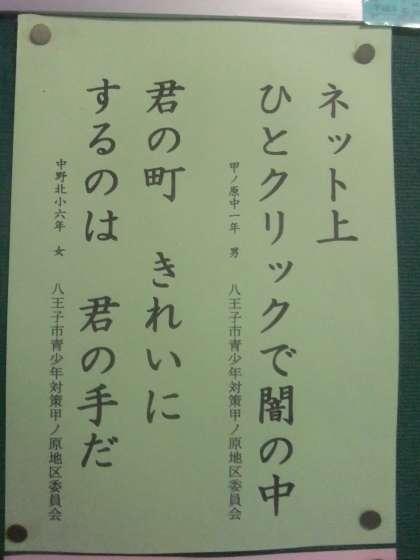 ネット上
ひとクリックで闇の中
甲ノ原中一年 男 八王子市青少年対策甲ノ原地区委員会
君の町 きれいに
するのは 君の手だ
中野北小六年 女 八王子市青少年対策甲ノ原地区委員会